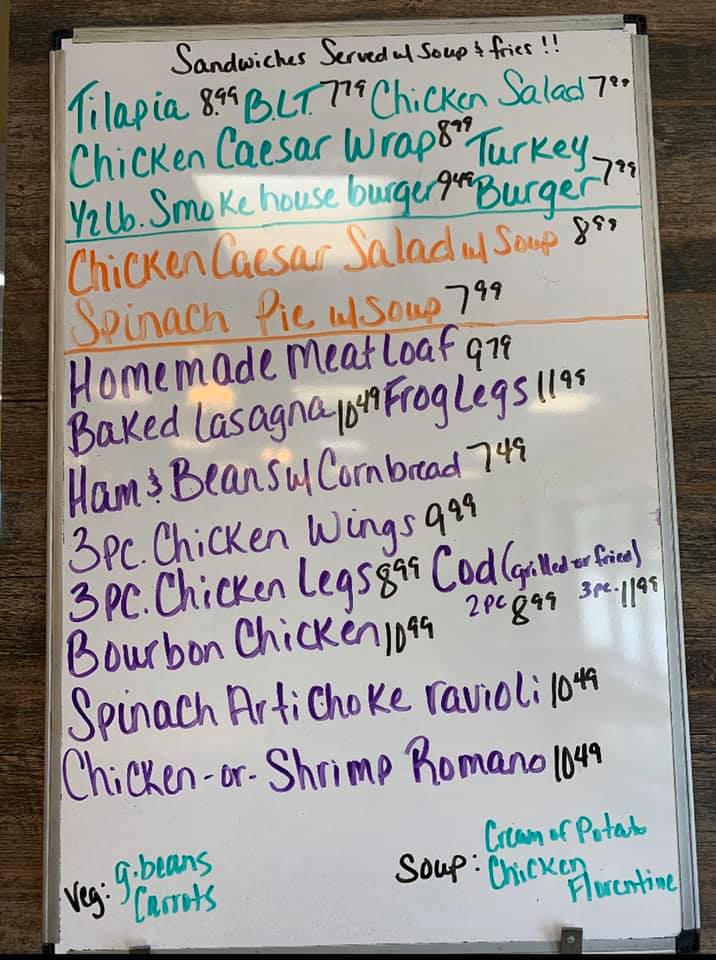 Sandwiches Served w/ Soup & fries!!
Tilapia 8.99 B.L.T. 7.79 Chicken Salad 7.99
Chicken Caesar Wrap 8.99 Turkey
1/2 Lb. Smokehouse burger 9.49 Burger 7.99
Chicken Caesar Salad w/ Soup 8.99
Spinach Pie w/ Soup 7.99
Homemade Meatloaf 9.79
Baked Lasagna 10.49 Frog Legs 11.99
Ham & Beans w/ Cornbread 7.49
3pc. Chicken Wings 9.99
3pc. Chicken Legs 8.99 Cod (grilled or fried)
2pc 8.99 3pc. 11.99
Bourbon Chicken 10.99
Spinach Artichoke ravioli 10.49
Chicken -or- Shrimp Romano 10.49
Veg: g.beans
Carrots
Soup: Cream of Potato
Chicken
Florentine